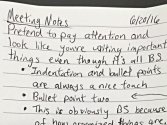 Meeting Notes 6/20/16
Pretend to pay attention and
look like you're writing important
things even though it's all BS.
• Indentation and bullet points
are always a nice touch
• Bullet point two
• This is obviously BS because
of how organized things are